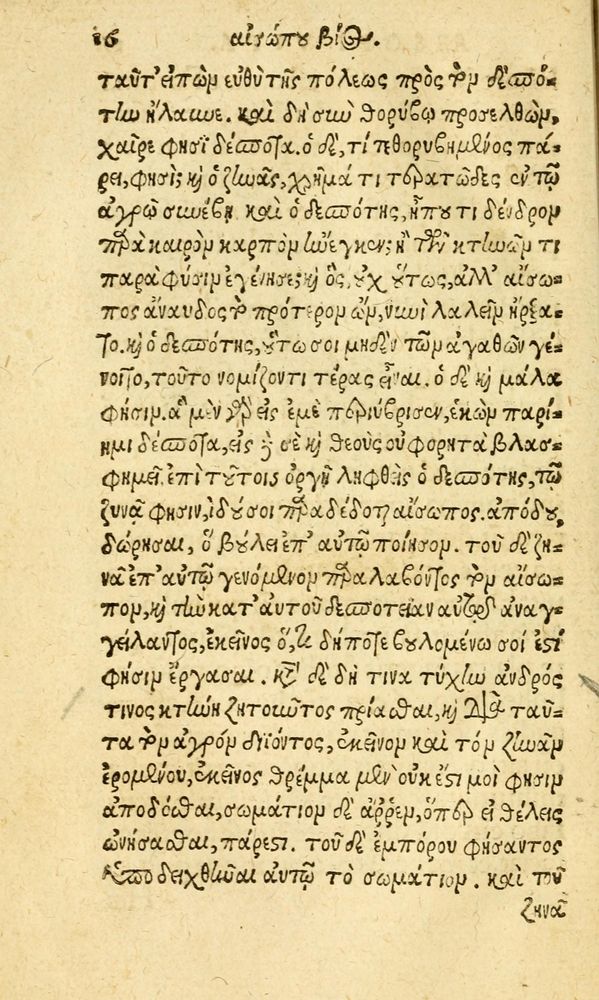 16 αἰσώπου βίος.
ταῦτ' εἰπὼν εὐθὺ τῆς πόλεως πρὸς τὸν δεσπό-
την ἤλαυνε. καὶ δὴ σὺν θορύβῳ προσελθὼν,
χαῖρε φησὶ δέσποτα. ὁ δὲ, τί τεθορυβημένος πά-
ρει, φησί; καὶ ὁ ζηνᾶς, χρῆμά τι τερατῶδες ἐν τῷ
ἀγρῷ συνέβη. καὶ ὁ δεσπότης, ἤπου τι δένδρον
παρὰ καιρὸν καρπὸν ἤνεγκεν; ἢ τῶν κτηνῶν τι
παρὰ φύσιν ἐγέννησε; καὶ ὃς, οὐχ οὕτως, ἀλλ' αἴσω-
πος ἄναυδος τὸ πρότερον ὢν, νυνὶ λαλεῖν ἤρξα-
το. καὶ ὁ δεσπότης, οὕτω σοι μηδὲν τῶν ἀγαθῶν γέ-
νοιτο, τοῦτο νομίζοντι τέρας εἶναι. ὁ δὲ καὶ μάλα
φησιν. ἃ μὲν γὰρ εἰς ἐμὲ περιύβρισεν, ἑκὼν παρί-
ημι δέσποτα, εἰς δὲ σὲ καὶ θεοὺς οὐ φορητὰ βλασ-
φημεῖ. ἐπὶ τούτοις ὀργῇ ληφθεὶς ὁ δεσπότης, τῷ
ζηνᾷ φησιν, ἰδού σοι παραδέδοται αἴσωπος. ἀπόδου,
δώρησαι, ὃ βούλει ἐπ' αὐτῷ ποίησον. τοῦ δὲ ζη-
νᾶ ἐπ' αὐτῷ γενόμενον παραλαβόντος τὸν αἴσω-
πον, καὶ τὴν κατ' αὐτοῦ δεσποτείαν αὐτῷ ἀναγ-
γείλαντος, ἐκεῖνος ὅ, τι δήποτε βουλομένῳ σοί ἐστί
φησιν ἔργασαι. κατὰ δὲ δή τινα τύχην ἀνδρός
τινος κτήνη ζητοῦντος πρίασθαι, καὶ διὰ ταῦ-
τα τὸν ἀγρὸν διϊόντος, ἐκεῖνον καὶ τὸν ζηνᾶν
ἐρομένου, ἐκεῖνος θρέμμα μὲν οὐκ ἔστι μοί φησιν
ἀποδόσθαι, σωμάτιον δὲ ἄρρεν, ὅπερ εἰ θέλεις
ὠνήσασθαι, πάρεστι. τοῦ δὲ ἐμπόρου φήσαντος
ὑποδειχθῆναι αὐτῷ τὸ σωμάτιον. καὶ τοῦ
ζηνᾶ